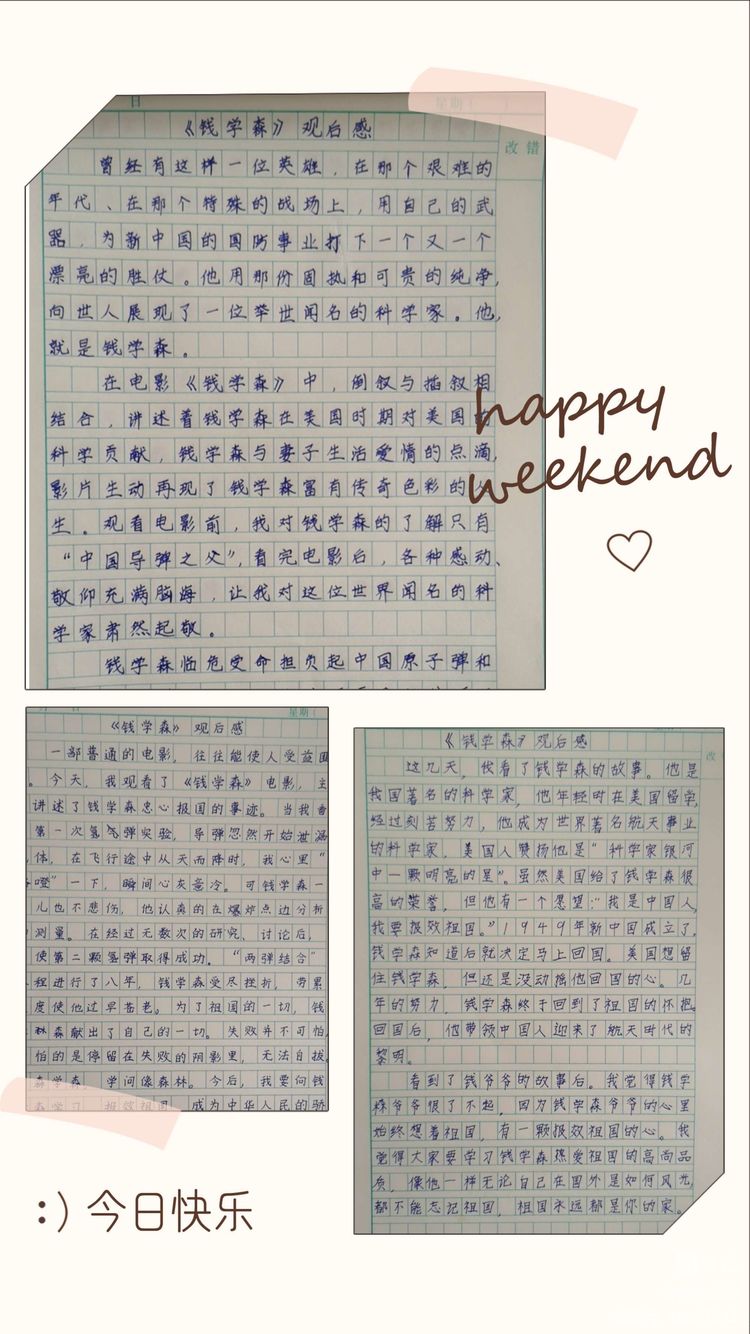 日
星期（ ）
改错
《钱学森》观后感
曾经有这样一位英雄，在那个艰难的
年代、在那个特殊的战场上，用自己的武
器，为新中国的国防事业打下一个又一个
漂亮的胜仗。他用那份固执和可贵的纯净，
向世人展现了一位举世闻名的科学家。他，
就是钱学森。
在电影《钱学森》中，倒叙与插叙相
结合，讲述着钱学森在美国时期对美国
科学贡献，钱学森与妻子生活爱情的点滴，
影片生动再现了钱学森富有传奇色彩的
生。观看电影前，我对钱学森的了解只有
“中国导弹之父”，看完电影后，各种感动、
敬仰充满脑海，让我对这位世界闻名的科
学家肃然起敬。
钱学森临危受命担负起中国原子弹和
happy
weekend
日
星期（
《钱学森》观后感
一部普通的电影，往往能使人受益匪
。今天，我观看了《钱学森》电影，主
讲述了钱学森忠心报国的事迹。当我看
第一次氢气弹实验，导弹忽然开始泄漏
体，在飞行途中从天而降时，我心里“
噔”一下，瞬间心灰意冷。可钱学森一
儿也不悲伤，他认真的在爆炸点边分析
测量。在经过无数次的研究、讨论后，
使第二颗氢弹取得成功。“两弹结合”
程进行了八年，钱学森受尽挫折，劳累
度使他过早苍老。为了祖国的一切，钱
森献出了自己的一切。失败并不可怕，
怕的是停留在失败的阴影里，无法自拔
森学森，学问像森林。今后，我要向钱
森学习，报效祖国，成为中华人民的骄
《钱学森》观后感
改
这几天，我看了钱学森的故事。他是
我国著名的科学家，他年轻时在美国留学，
经过刻苦努力，他成为世界著名航天事业
的科学家，美国人赞扬他是“科学家银河
中一颗明亮的星”。虽然美国给了钱学森很
高的荣誉，但他有一个愿望：“我是中国人，
我要报效祖国。”1949年新中国成立了，
钱学森知道后就决定马上回国。美国想留
住钱学森，但还是没动摇他回国的心。几
年的努力，钱学森终于回到了祖国的怀抱。
回国后，他带领中国人迎来了航天时代的
黎明。
看到了钱爷爷的故事后。我觉得钱学
森爷爷很了不起，因为钱学森爷爷的心里
始终想着祖国，有一颗报效祖国的心。我
觉得大家要学习钱学森热爱祖国的高尚品
质，像他一样无论自己在国外是如何风光，
都不能忘记祖国，祖国永远都是你的家。
:) 今日快乐